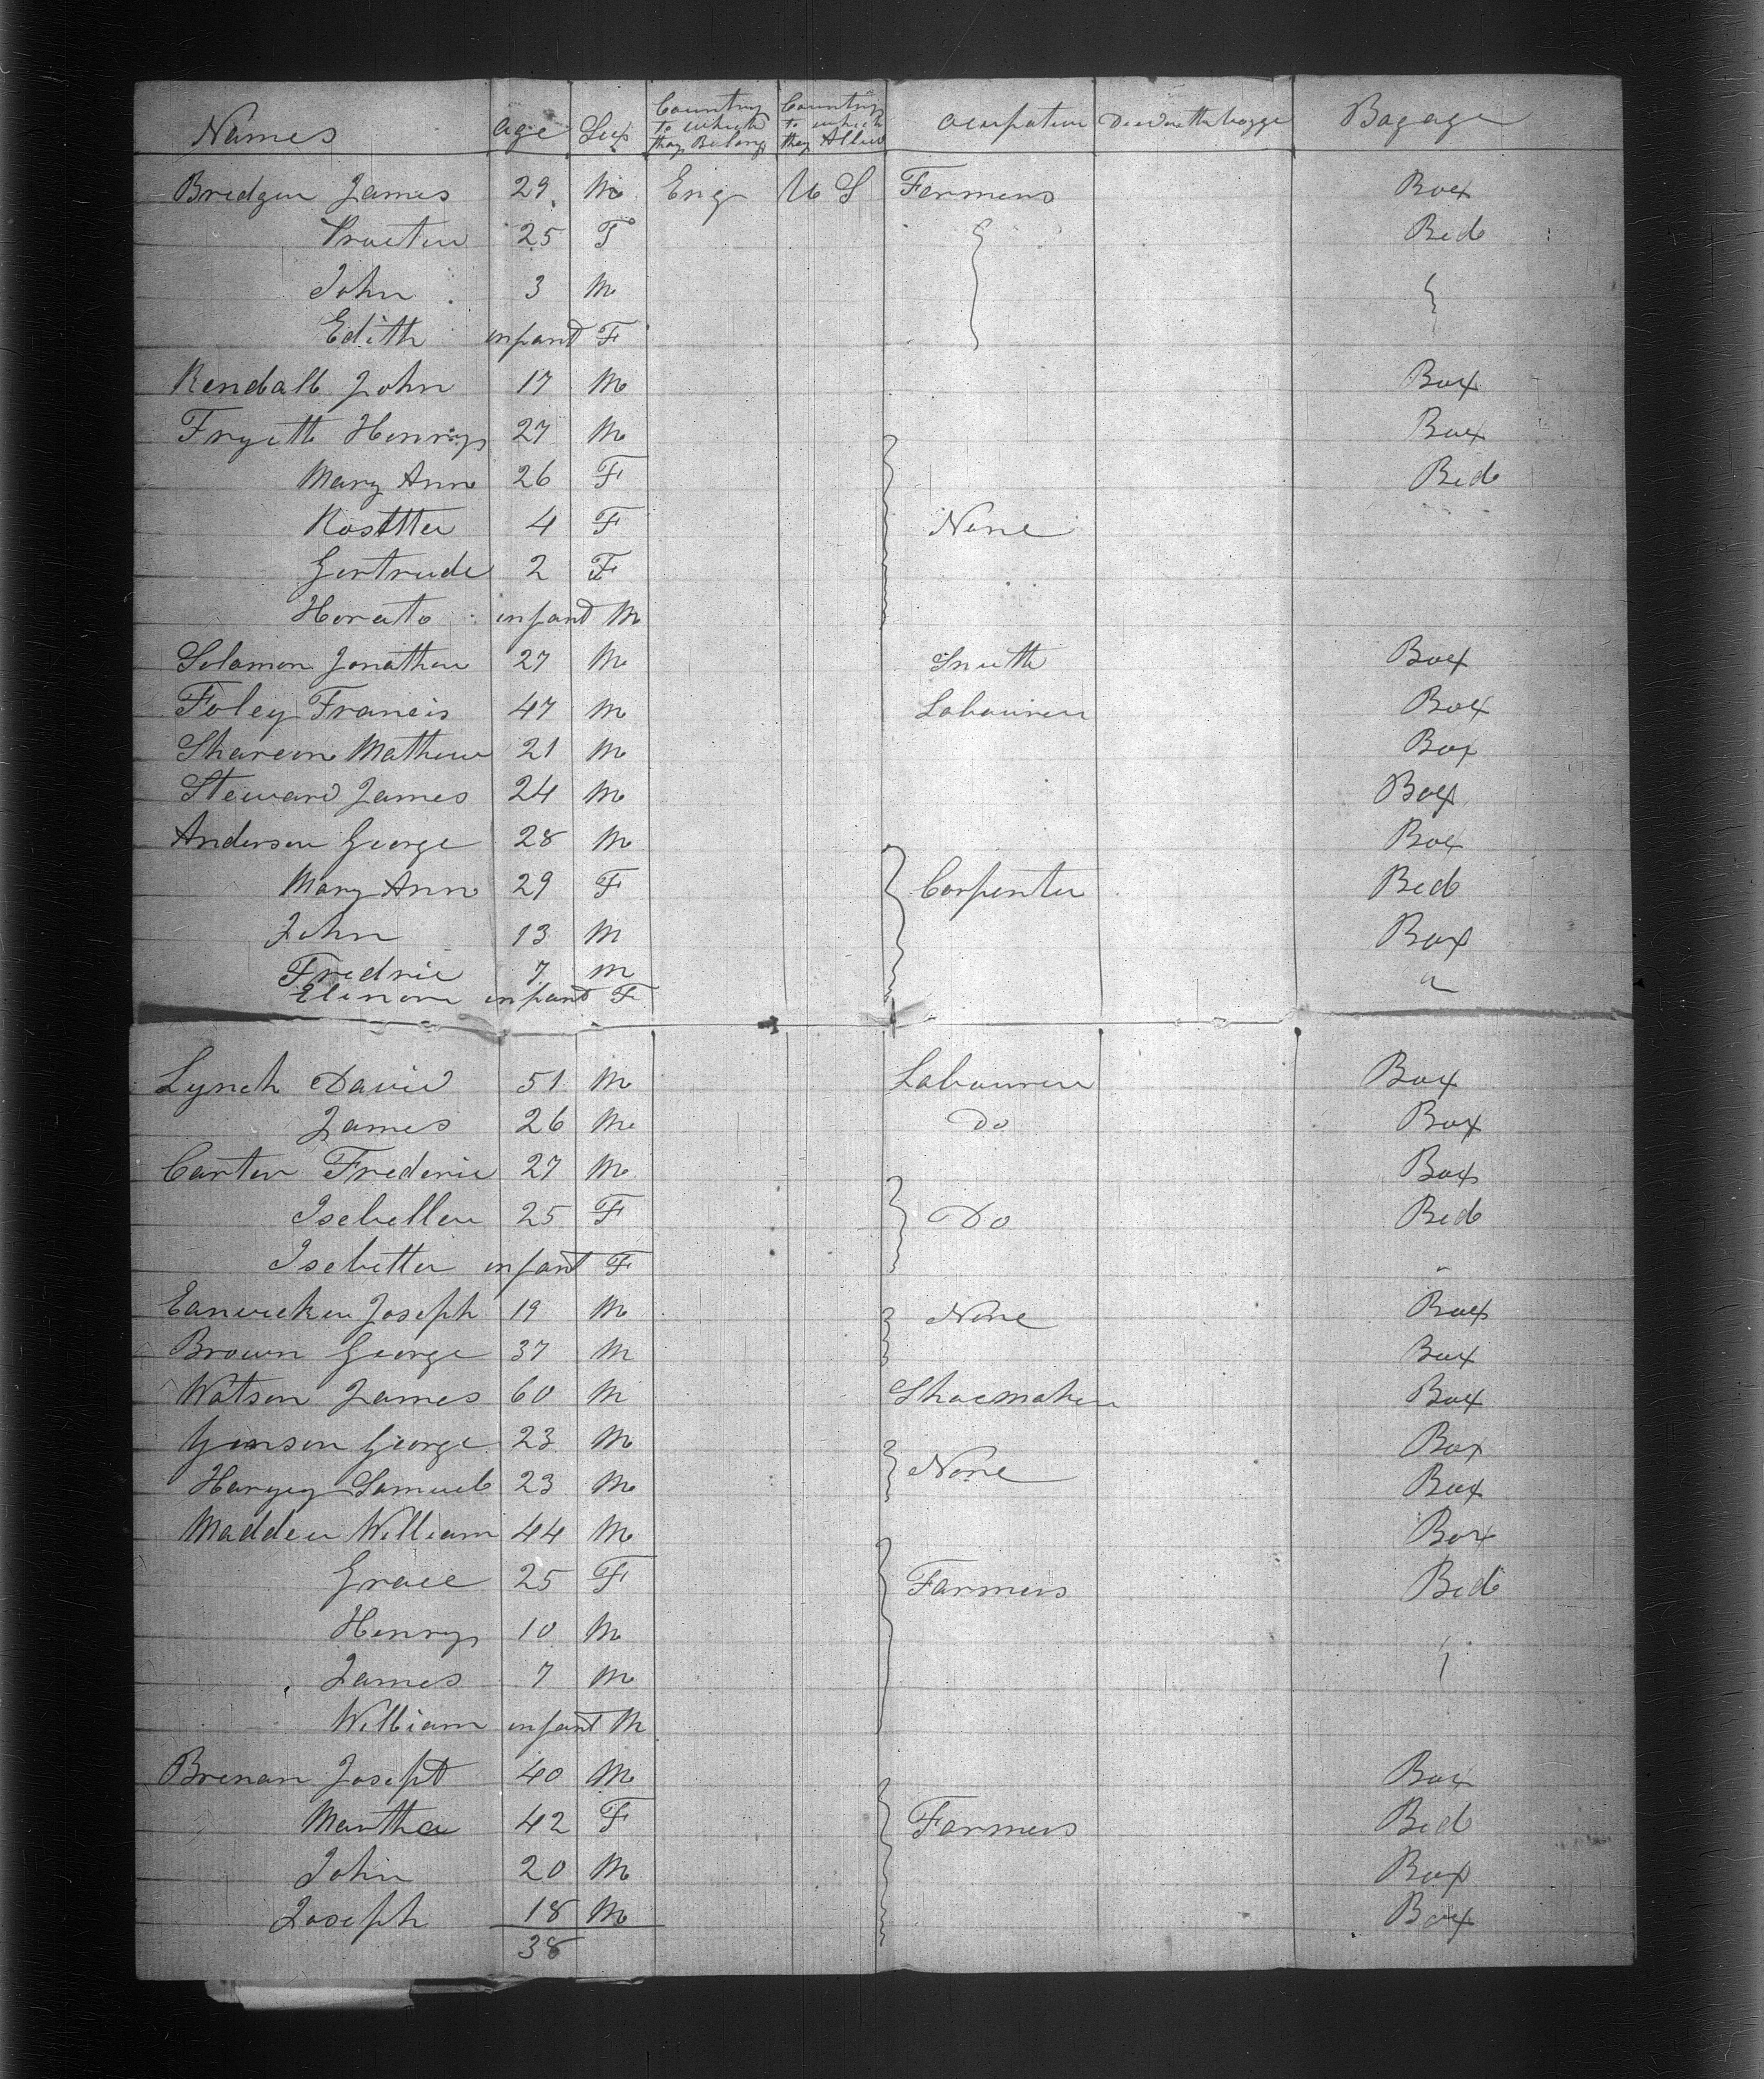 Names age Sex Country to which they Belong Country to which they Occupation Bagage
Bridger James 29 M Eng U S Farmers Box
25 F Bed
John 3 M
Edith infant F
Kendall John 17 M Box
Fryett Henry 27 M Box
Mary Ann 26 F Bed
4 F None
Gertrude 2 F
Horato infant M
Solomon Jonathan 27 M Smith Box
Foley Francis 47 M Labourer Box
Mathew 21 M Box
Steward James 24 M Box
Anderson George 28 M Box
Mary Ann 29 F Carpenter Bed
John 13 M Box
Fredric 7 M "
Elinora infant F
Lynch David 51 M Labourer Box
James 26 M Do Box
Carter Frederic 27 M Box
Isebella 25 F Do Bed
Isebella infant F "
Joseph 19 M None Box
Brown George 37 M Box
Watson James 60 M Shoemaker Box
George 23 M Box
Harvey Samuel 23 M None Box
Madden William 44 M Box
Grace 25 F Farmers Bed
Henry 10 M
James 7 M
William infant M
Brenan Joseph 40 M Box
Martha 42 F Farmers Bed
John 20 M Box
Joseph 18 M Box
38